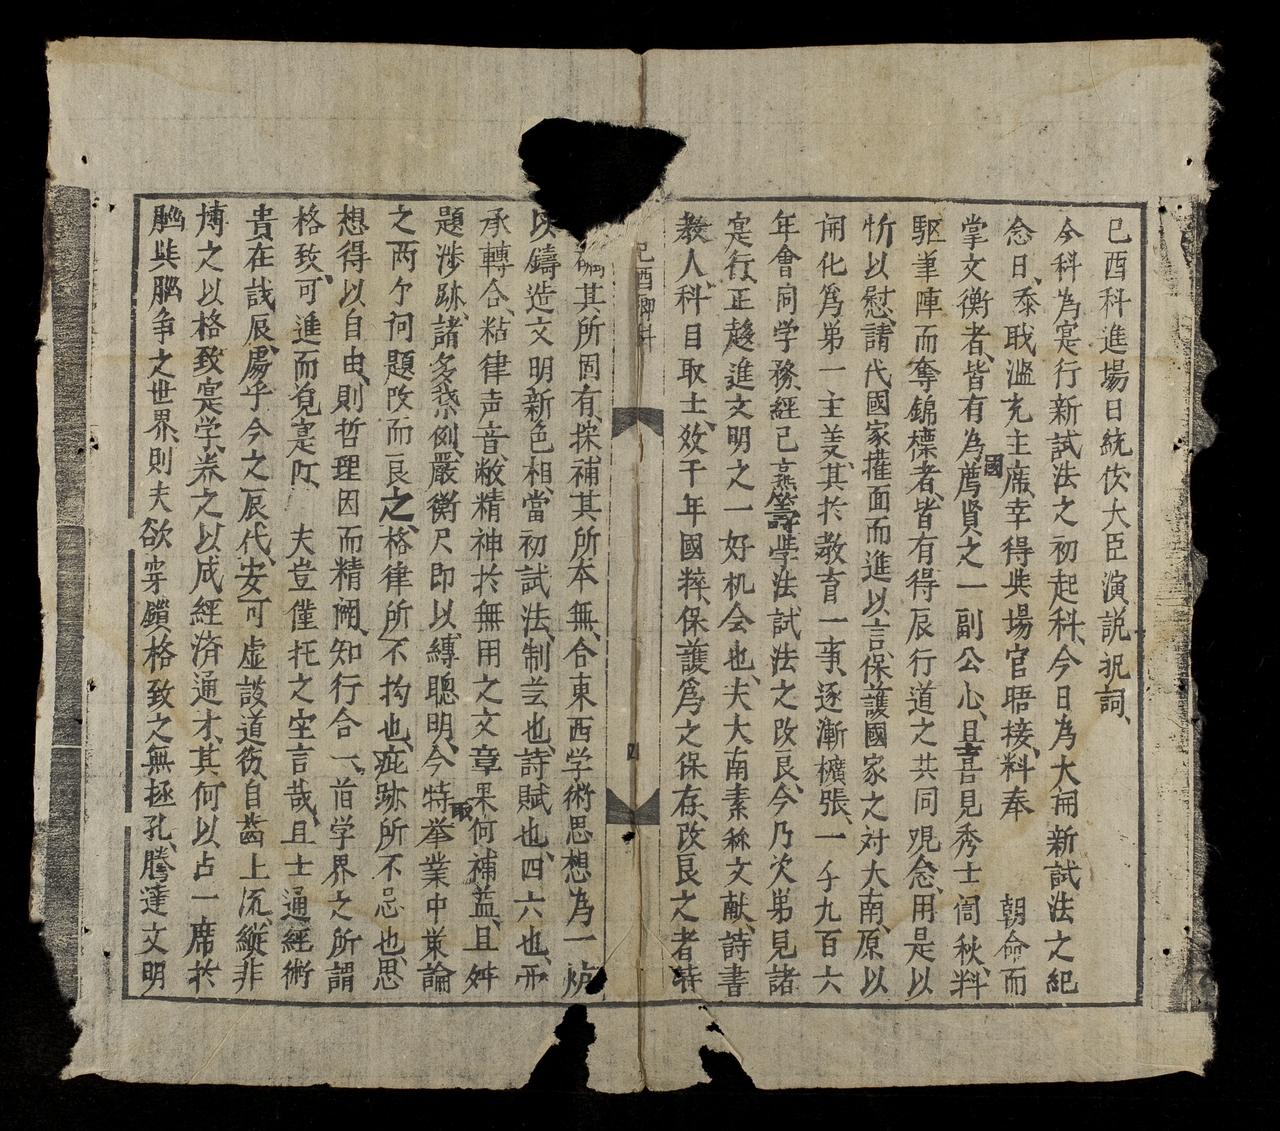 己酉科進場日統使大臣演説祝詞、
今科為寔行新試法之初起科、今日為大南新試法之紀
念日、忝職濫充主席、幸得與場官晤接、料奉 朝命而
掌文衡者、皆有為國薦賢之一副公心、且喜見秀士闈秋、料
駆筆陣而奪錦標者、皆有得辰行道之共同观念、用是以
忻以慰、請代國家擢面而進以言、保護國家之対大南、原以
開化爲弟一主義、其扵教育一事、逐漸擴張、一千九百六
年會同学務、經已熹籌學法試法之改良、今乃次弟見諸
寔行、正趍進文明之一好机会也、夫大南素稱文献、詩書
教人、科目取士、效千年國粹、保護爲之保存、改良之者、特
己酉鄉科
其所固有、採補其所本無、合東西学術思想為一炉
以鑄造文明新色相、當初試法、制芸也、詩賦也、四六也、
承轉合、粘律声音、敝精神扵無用之文章、果何補益、且
題渉跡、諸多禁例、嚴衡尺即以縛聰明、今特取挙業中策論
之两尓、问題改而良之、格律所不拘也、疵跡所不忌也、思
想得以自由、則哲理因而精闡、知行合一、首学界之所謂
格致、可進而覓寔 夫豈僅托之空言哉、且士通經術
貴在識辰、處乎今之辰代、安可虚談道德、自齒上流、縱非
博之以格致寔学、养之以成經済通才、其何以占一席扵
腦與腦争之世界、則夫欲穿鎖格致之無極孔、騰達文明